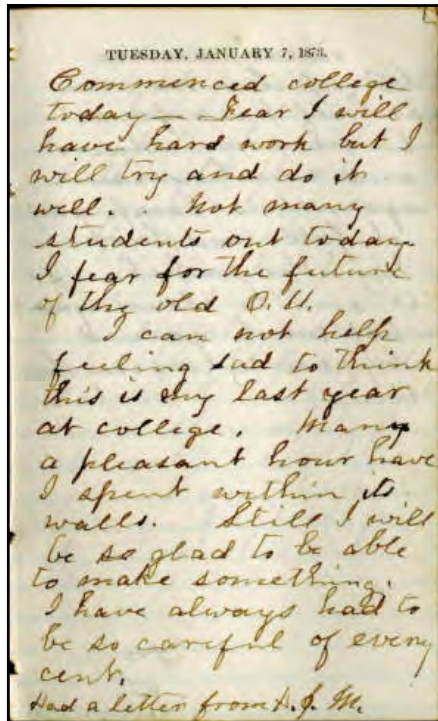 TUESDAY, JANUARY 7, 1873.
Commenced college
today — Fear I will
have hard work but I
will try and do it
well. . Not many
students out today
I fear for the future
of the old O. U.
I can not help
feeling sad to think
this is my last year
at college. Many
a pleasant hour have
I spent within its
walls. Still I will
be so glad to be able
to make something.
I have always had to
be so careful of every
cent.
Had a letter from